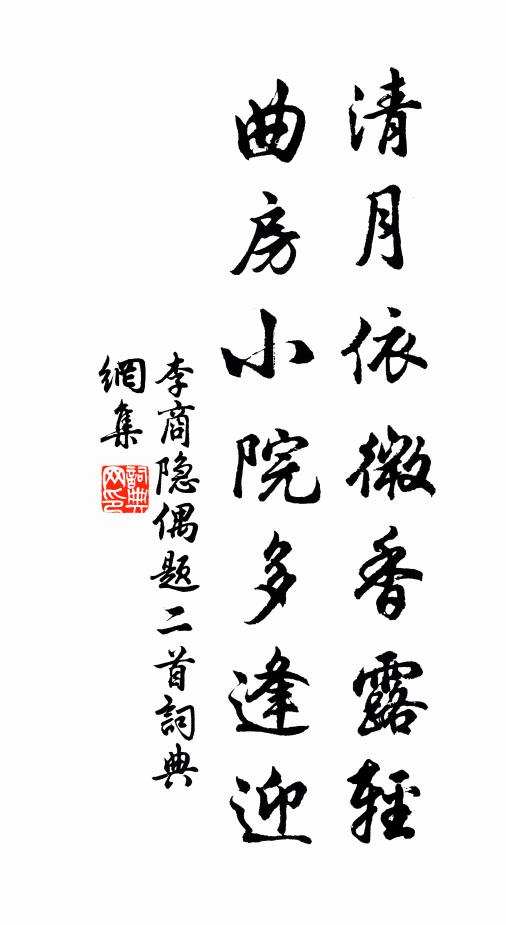 清月依微香露輕
曲房小院多逢迎
李商隐偶題二首詞典
網集
詞典網印